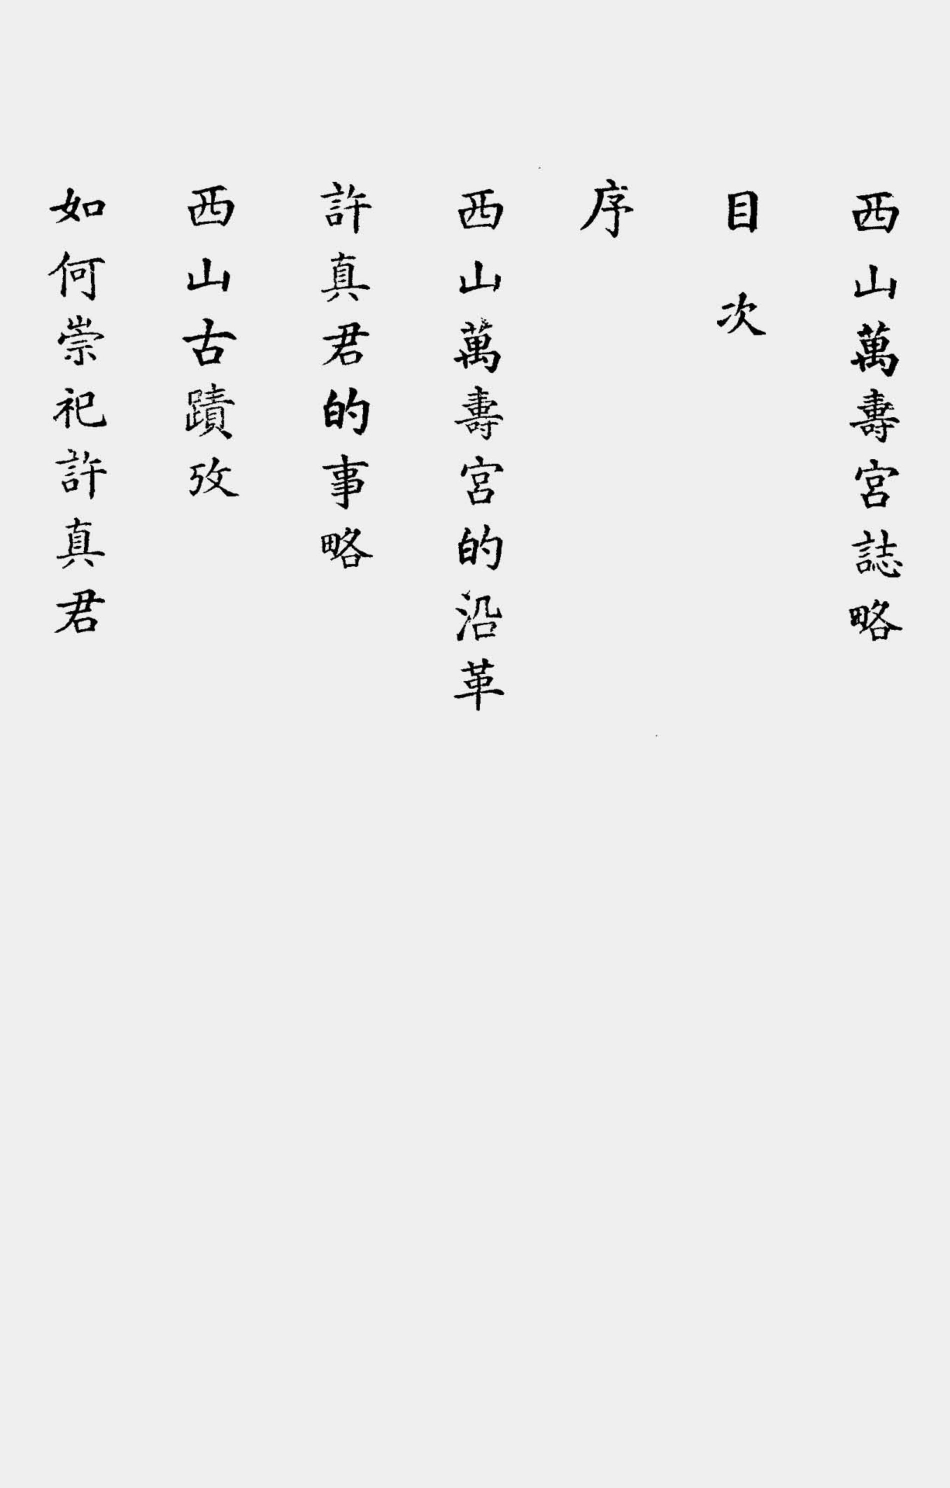 西山萬壽宮誌略
目次
序
西山萬壽宮的沿革
許真君的事略
西山古蹟攷
如何崇祀許真君